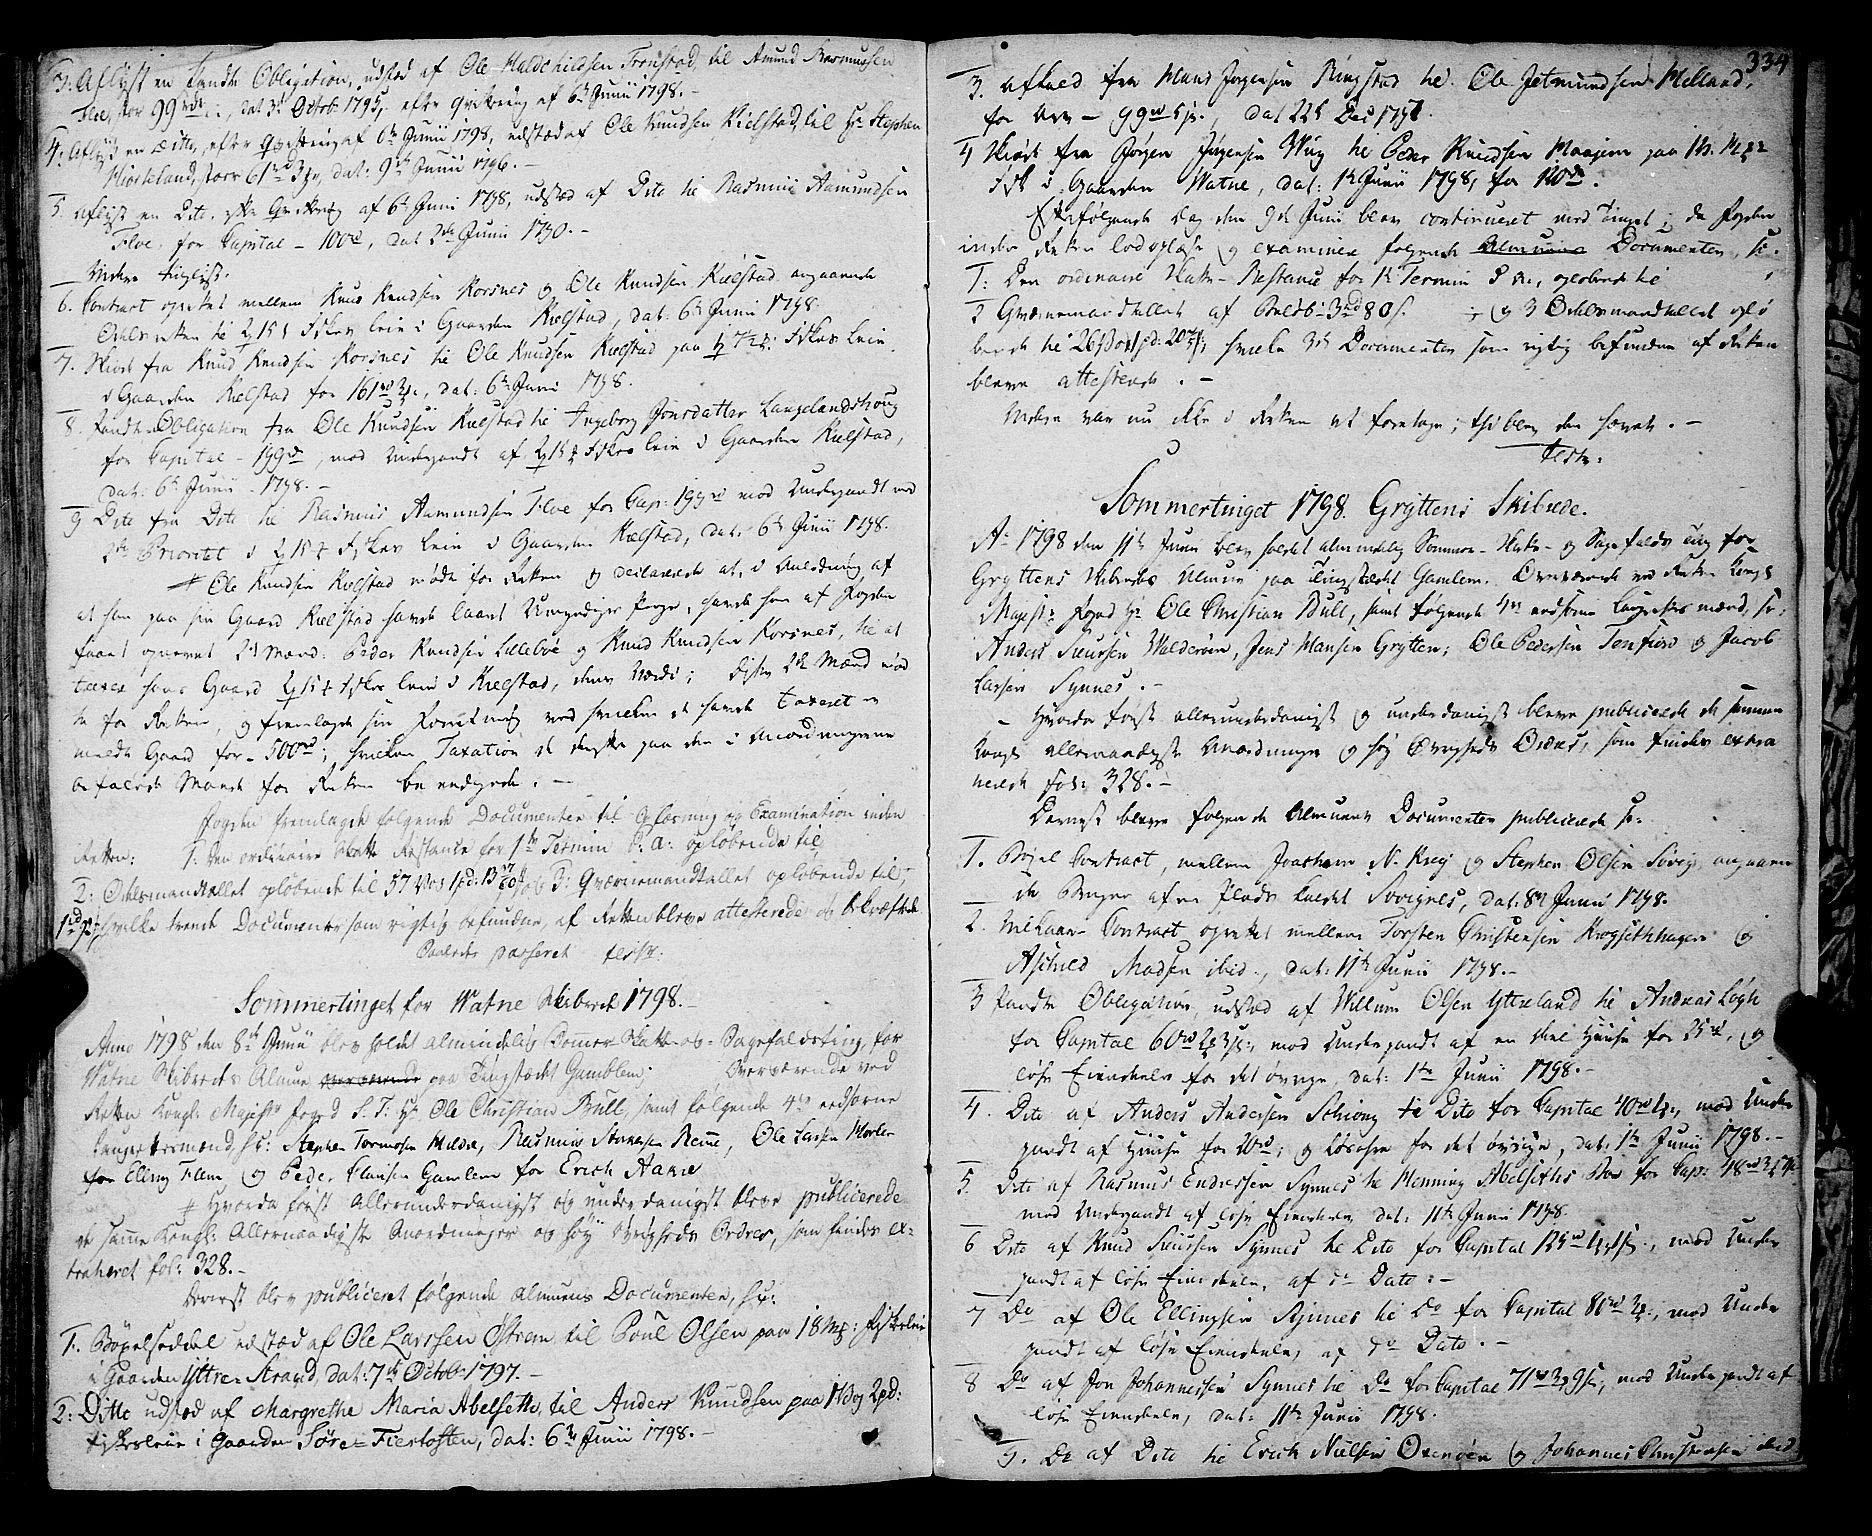 3: Aflyst en Pandte Obligation, udstæd af Ole Haldchildsen Tronstad, til Amund Rasmussen
Floe, stor 99 rd, dat: 3 Octob 1795, efter Qvitering af 6te Junii 1798.-
4: Aflyst en Ditto, efter Qvittering af 6te Junii 1798, udstæd af Ole Knudsen Kielstad, til Hr Stephen
Hiorteland, stor 61 rd 3 , dat: 9de Junii 1796.-
5. Aflyst en Dito, efter Qvittering af 6te Junii 1798, udstæd af Dito til Rasmus Aamundsen
Floe, for Capital - 100 rd, dat 2de Junii 1790.-
Videre tinglyst.
6. Contract oprettet mellem Knud Knudsen Korsnes og Ole Knudsen Kielstad angaaende
Odelsretten til Fiskes leie i Gaarden Kielstad, dat: 6te Junii 1798.
7. Skiøde fra Knud Knudsen Korsnes til Ole Knudsen Kielstad paa Fiskes leie
i Gaarden Kielstad for 161 rd , dat: 6te Junii 1798.
8. Pandte Obligation fra Ole Knudsen Kielstad til Ingeborg Jonsdatter Langelandshoug
for Capital - 199 rd, mod Underpandt af Fiskes leie i Gaarden Kielstad,
dat: 6te Junii 1798.-
9 Dito fra Dito til Rasmus Aamundsen Floe for Cap: 199 rd mod Underpandt med
2den Prioritet i Fiskes leie i Gaarden Kielstad, dat: 6te Junii 1798.
Ole Knudsen Kielstad mødte for Retten og declarerede at, i Anledning af
at han paa sin Gaard Kielstad havde laant Umyndiges Penge, havde han af Fogden
faaet opnævnt 2de Mænd: Peder Knudsen Lillebøe og Knud Knudsen Korsnes, til at
taxere hans Gaard Fiskes leie i Kielstad, dens Værdi; Disse 2de Mænd mød-
te for Retten, og fremlagde sin Forretning ved hvilken de havde taxeret
meldte Gaard for - 500 rd; hvilken Taxation de derefter paa den i Anordningerne
befalede Maade for Retten beeedigede.-
Fogden fremlagde følgende Documenter til Oplæsning og Examination inden
Retten: 1: den ordinaire Skatte Restance for 1te Termin d: A: opløbende til
2: Odelsmandtallet opløbende til 57 Vog 1 pd: 13 og 3: Qværnemandtallet opløbende til,
hvilke trende Documenter som rigtig befundne, af Retten bleve attesterede og bekræftede
Saaledes passeret test:
Sommertinget for Watne Skibrede 1798.-
Anno 1798 den 8de Junii blev holdet almindelig Sommer Skatte- og Sagefaldsting, for
Watne Skibreds Almue paa Tingstædet Gamblem. Overværende ved
Retten Kongl: Majests Foged S: T: Hr Ole Christian Bull, samt følgende 4re eedsorne
Laugrettesmænd, sc: Stephen Tormosen Mildre, Rasmus Steenersen Reine, Ole Larsen Morlet
for Elling Flem, og Peder Clausen Gamlem for Erich Aakre
Hvorda først Allerunderdanigst og underdanigst bleve publicerede
de samme Kongl: Allernaadigste Anordninger og høy Øvrigheds Ordres, som findes ex-
traheret fol: 328.-
dernest blev publiceret følgende Almuens Documenter, sc:
1. Bøxelseddel udstæd af Ole Larssen Østrem til Poul Olsen paa 18 Mk: Fiskeleie
i Gaarden Yttre Strand, dat: 7de Octobr 1797.-
2: Ditto udstæd af Margrethe Maria Abelseth, til Anders Knudsen paa 1 Vog 2 pd:
fiskesleie i Gaarden Søre Fiertosten, dat: 6te Junii 1798.-
334
3. Afkald fra Mons Jørgensen Ringstad til Ole Jetmundsen Melland,
for Arv - 99 rd 5 s., dat 22de Dec 1797.
4 Skiøde fra Jørgen Jørgensen Wiig til Peder Knudsen Maagerøe paa
Fisk i Gaarden Watne, dat: 1te Junii 1798, for 120 rd.
Efterfølgende Dag den 9de Junii blev continueret med Tinget; da Fogden
inden Retten lod oplæse og examinere følgende Documenter, sc:
1: Den ordinaire Skatte-Restance for 1te Termin d. A., opløbende til
2 Qværnemandtallet af Beløb - 3 rd 80 s. og 3 Odelsmandtallet opløbende
til 26 Vog 1 pd: 20 ; hvilke 3de Documenter som rigtig befundne af Retten
bleve attesterede.-
Videre var nu ikke i Retten at foretage; thi blev den hævet.-
Test:
Sommertinget 1798. Gryttens Skibrede.
Ao 1798 den 11te Junii blev holdet almindelig Sommer- Skatte- og Sagefalds Ting for
Gryttens Skibredes Almue paa Tingstædet Gamlem. Overværende ved Retten Kongl
Majsts Foged Hr Ole Christian Bull, samt følgende 4re eedsorne Laugrettes mænd, sc:
Anders Siursen Walderøen, Jens Hansen Grytten, Ole Pedersen Tenfiord og Jacob
Larsen Synnes.-
- Hvorda først allerunderdanigst og underdanigst bleve publicerede de samme
Kongl allernaadigste Anordninger og høy Øvrigheds Ordres, som findes extra
herede fol: 328.-
Dernest bleve følgende Almuens Documenter publicerede sc:
1. Bøxel Contract, mellem Joachim N. Krog og Stephen Olsen Søvig, angaaen
de Brugen af en Plads kaldet Sovignes, dat: 8de Junii 1798.
2. Vilkaars Contract oprettet mellem Torsten Christensen Krogsethhagen og
Aschild Madsen ibid., dat: 11te Junii 1798.-
3 Pandte Obligation, udstæd af Willum Olsen Ytterland til Andreas Logh
for Capital 60 rd 2 3 s., mod Underpandt af en deel Huuse for 25 rd, og
løse Eiendeele for det øvrige, dat: 1te Junii 1798.-
4. Dito af Anders Andersen Schiong til Dito for Capital 40 rd 1 , mod Under
pandt af Huuse for 20 rd; og Løsøre for det øvrige, dat: 1te Junii 1798.-
5. Dito af Rasmus Endresen Synnes til Henning Abelseths Boe for Cap: 48 rd
mod Underpandt af løse Eiendeele dat: 11te Junii 1798.
6 Dito af Knud Siursen Synnes til Dito for Capital , mod Under
pandt af løse Eiendeele, af do Dato:-
7 Do af Ole Ellingsen Synnes til Do for Capital 80 rd 2 , mod Under
pandt af løse Eiendeele, af do Dato.-
8 Do af Jon Johannessen Synnes til Do for Capital 71 rd 3 9 s:, mod Underpandt af
løse Eiendeele, dat: 11te Junii 1798.
9. Do af Dito til Erich Nielsen Oxenøen og Johannes Christensen ibid